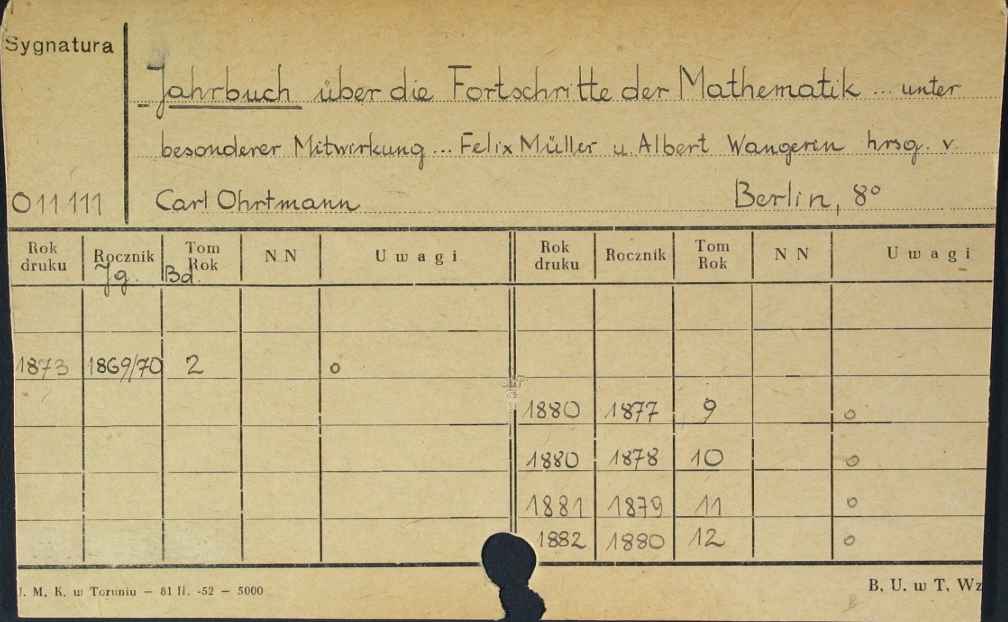 Sygnatura
Jahrbuch über die Fortschritte der Mathematik ... unter
besonderer Mitwirkung ... Felix Müller u. Albert Wangerin hrsg. v.
O 11 111 Carl Ohrtmann Berlin, 8°
Rok druku Rocznik Tom Rok NN Uwagi Rok druku Rocznik Tom Rok NN Uwagi
Jg. Bd.
1873 1869/70 2 o
1880 1877 9 o
1880 1878 10 o
1881 1879 11 o
1882 1880 12 o
J. M. K. w Toruniu — 81 II. -52 — 5000 B. U. w T. Wz